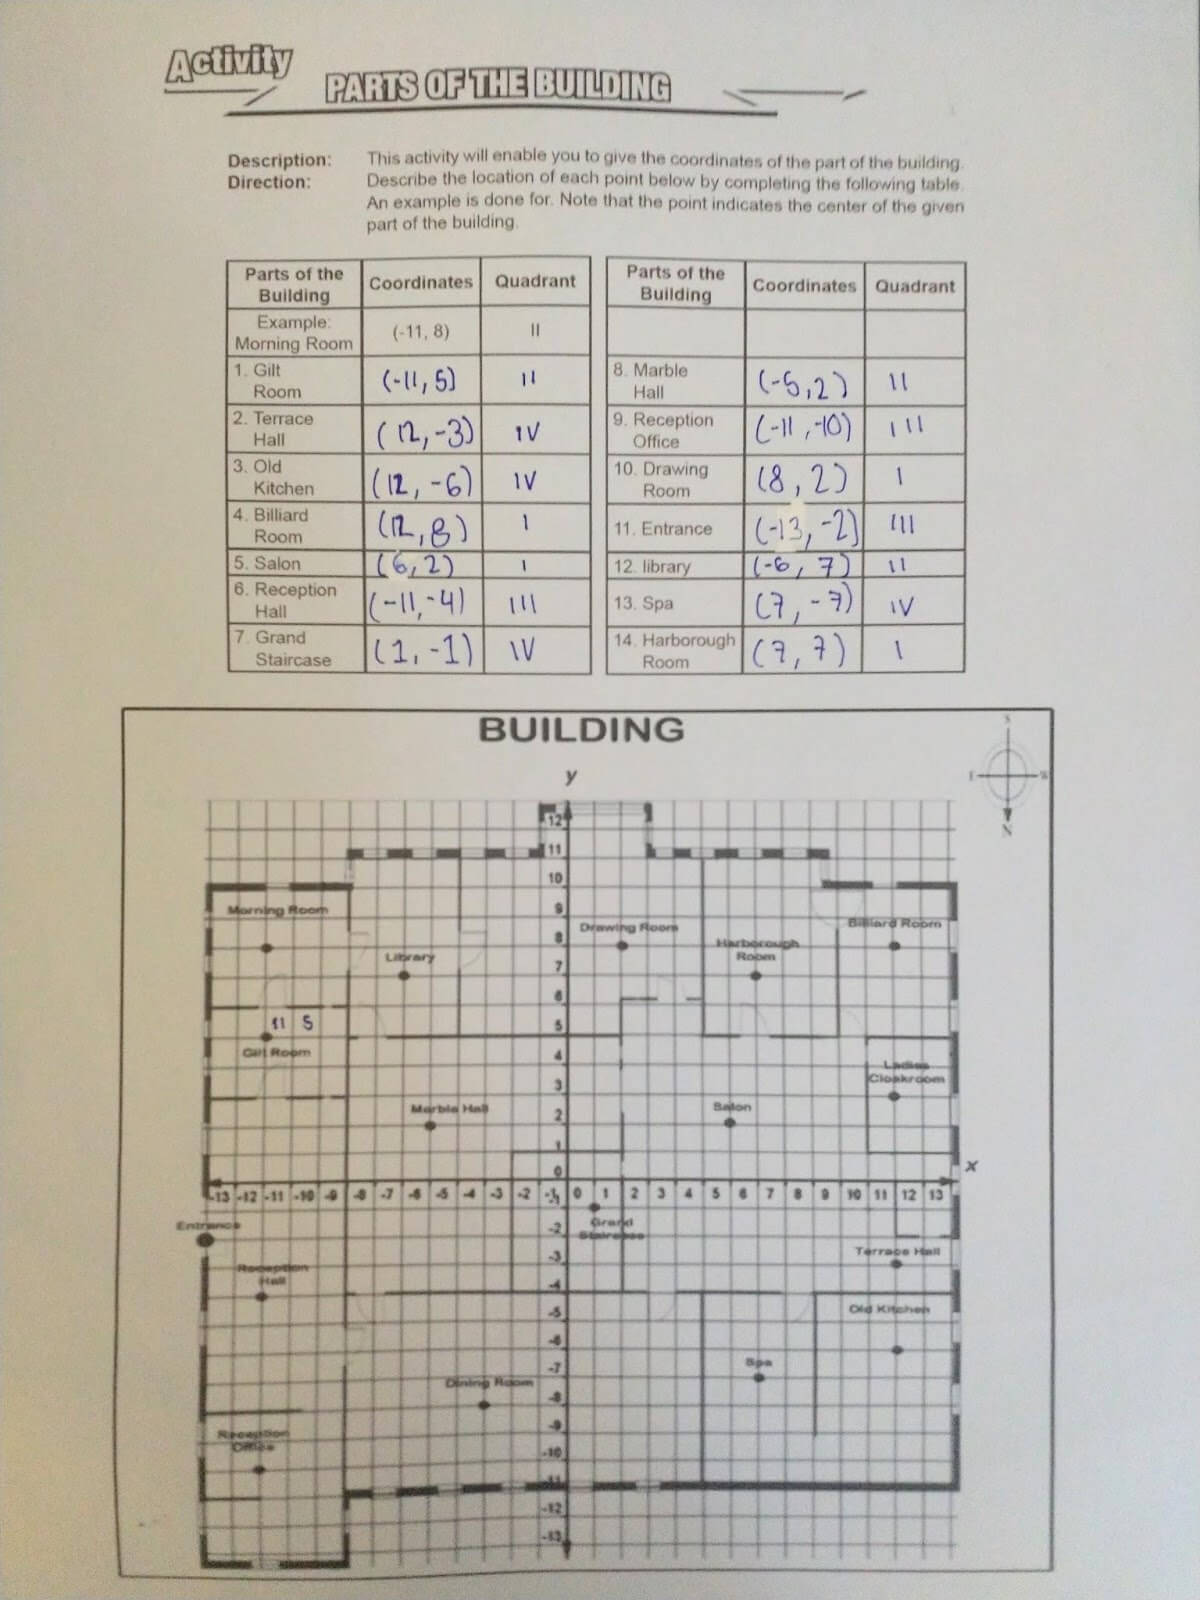 Activity
PARTS OF THE BUILDING
Description: This activity will enable you to give the coordinates of the part of the building.
Direction: Describe the location of each point below by completing the following table.
An example is done for. Note that the point indicates the center of the given
part of the building.
Parts of the Building Coordinates Quadrant
Example: Morning Room (-11, 8) II
1. Gilt Room (-11, 5) II
2. Terrace Hall (12, -3) IV
3. Old Kitchen (12, -6) IV
4. Billiard Room (12, 8) I
5. Salon (6, 2) I
6. Reception Hall (-11, -4) III
7. Grand Staircase (1, -1) IV
Parts of the Building Coordinates Quadrant
8. Marble Hall (-5, 2) II
9. Reception Office (-11, -10) III
10. Drawing Room (8, 2) I
11. Entrance (-13, -2) III
12. library (-6, 7) II
13. Spa (7, -7) IV
14. Harborough Room (7, 7) I
BUILDING
S
W
N
y
12
11
10
Morning Room 9
Drawing Room Billiard Room
8
Harborough
Library Room
7
6
11 5 5
Gilt Room 4
Ladies
Cloakroom
3
Marble Hall 2 Salon
1
0 x
-13 -12 -11 -10 -9 -8 -7 -6 -5 -4 -3 -2 -1 0 1 2 3 4 5 6 7 8 9 10 11 12 13
-1
Entrance -2 Grand
Staircase
-3 Terrace Hall
Reception
Hall -4
-5 Old Kitchen
-6
-7 Spa
Dining Room
-8
-9
Reception
Office
-10
-11
-12
-13